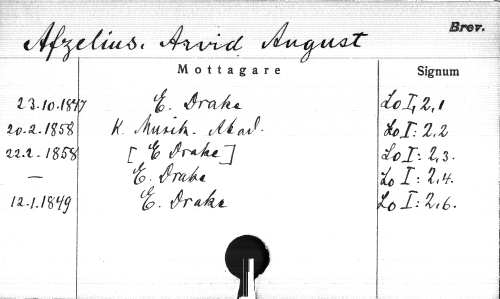 Brev.
Afzelius, Arvid August
Mottagare Signum
23.10.1847 E. Drake Lo I, 2,1
20.2.1858 K. Musik. Akad. Lo I: 2,2
22.2.1858 [E Drake] Lo I: 2,3.
— E. Drake Lo I: 2,4.
12.1.1849 E. Drake Lo I: 2,6.